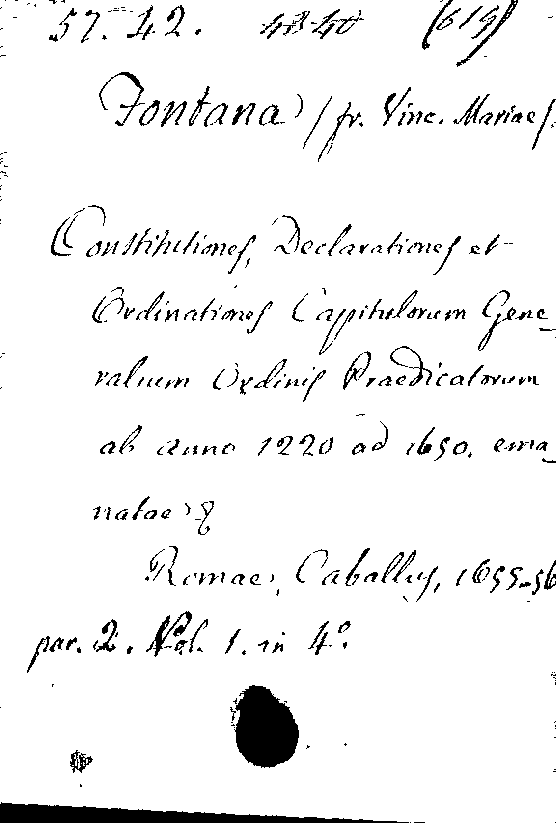 57. 42. 4840 (619)
Fontana / fr. Vinc. Mariae /.
Constitutiones, Declarationes et
Ordinationes Capitulorum Gene_
ralium Ordinis Praedicatorum
ab anno 1220 ad 1650. ema_
natae &
Romae, Caballus, 1655-56
par. 2. Vol. 1. in 4°.